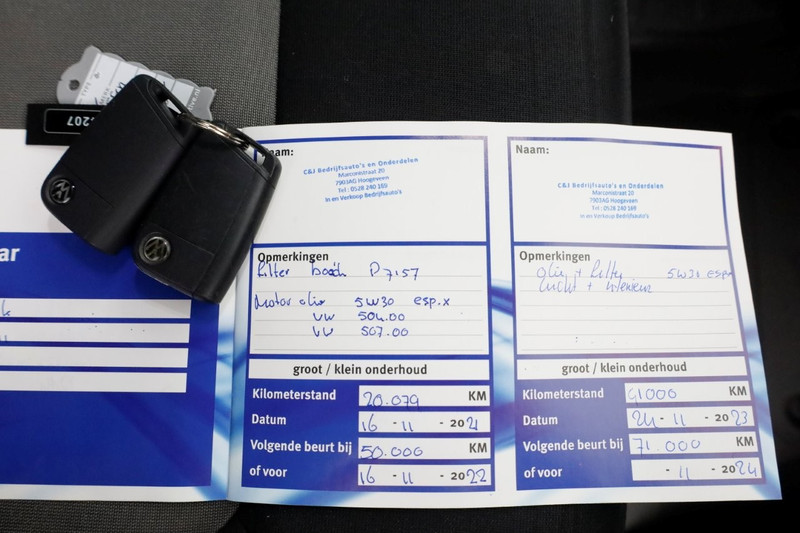 207
ar
Naam:
C&J Bedrijfsauto's en Onderdelen
Marconistraat 20
7903AG Hoogeveen
Tel : 0528 240 169
in en Verkoop Bedrijfsauto's
Opmerkingen
filter bosch P7157
Motor olie 5W30 esp.x
VW 504.00
VW 507.00
groot / klein onderhoud
Kilometerstand 20.079 KM
Datum 16 - 11 - 2021
Volgende beurt bij 50.000 KM
of voor 16 - 11 - 2022
Naam:
C&J Bedrijfsauto's en Onderdelen
Marconistraat 20
7903AG Hoogeveen
Tel : 0528 240 169
in en Verkoop Bedrijfsauto's
Opmerkingen
olie + filter 5W30 esp
lucht + interieur
groot / klein onderhoud
Kilometerstand 41000 KM
Datum 24 - 11 - 2023
Volgende beurt bij 71.000 KM
of voor - 11 - 2024